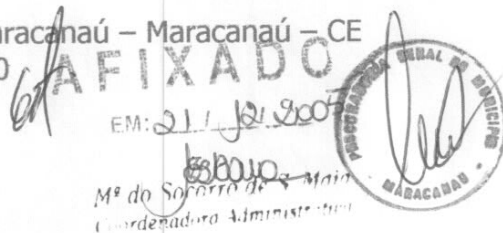 Maracanaú – CE
0
AFIXADO
EM: 21/12/2005
Mª do Socorro de Maia
Coordenadora Administrativa
PROCURADORIA GERAL DO MUNICÍPIO
MARACANAU